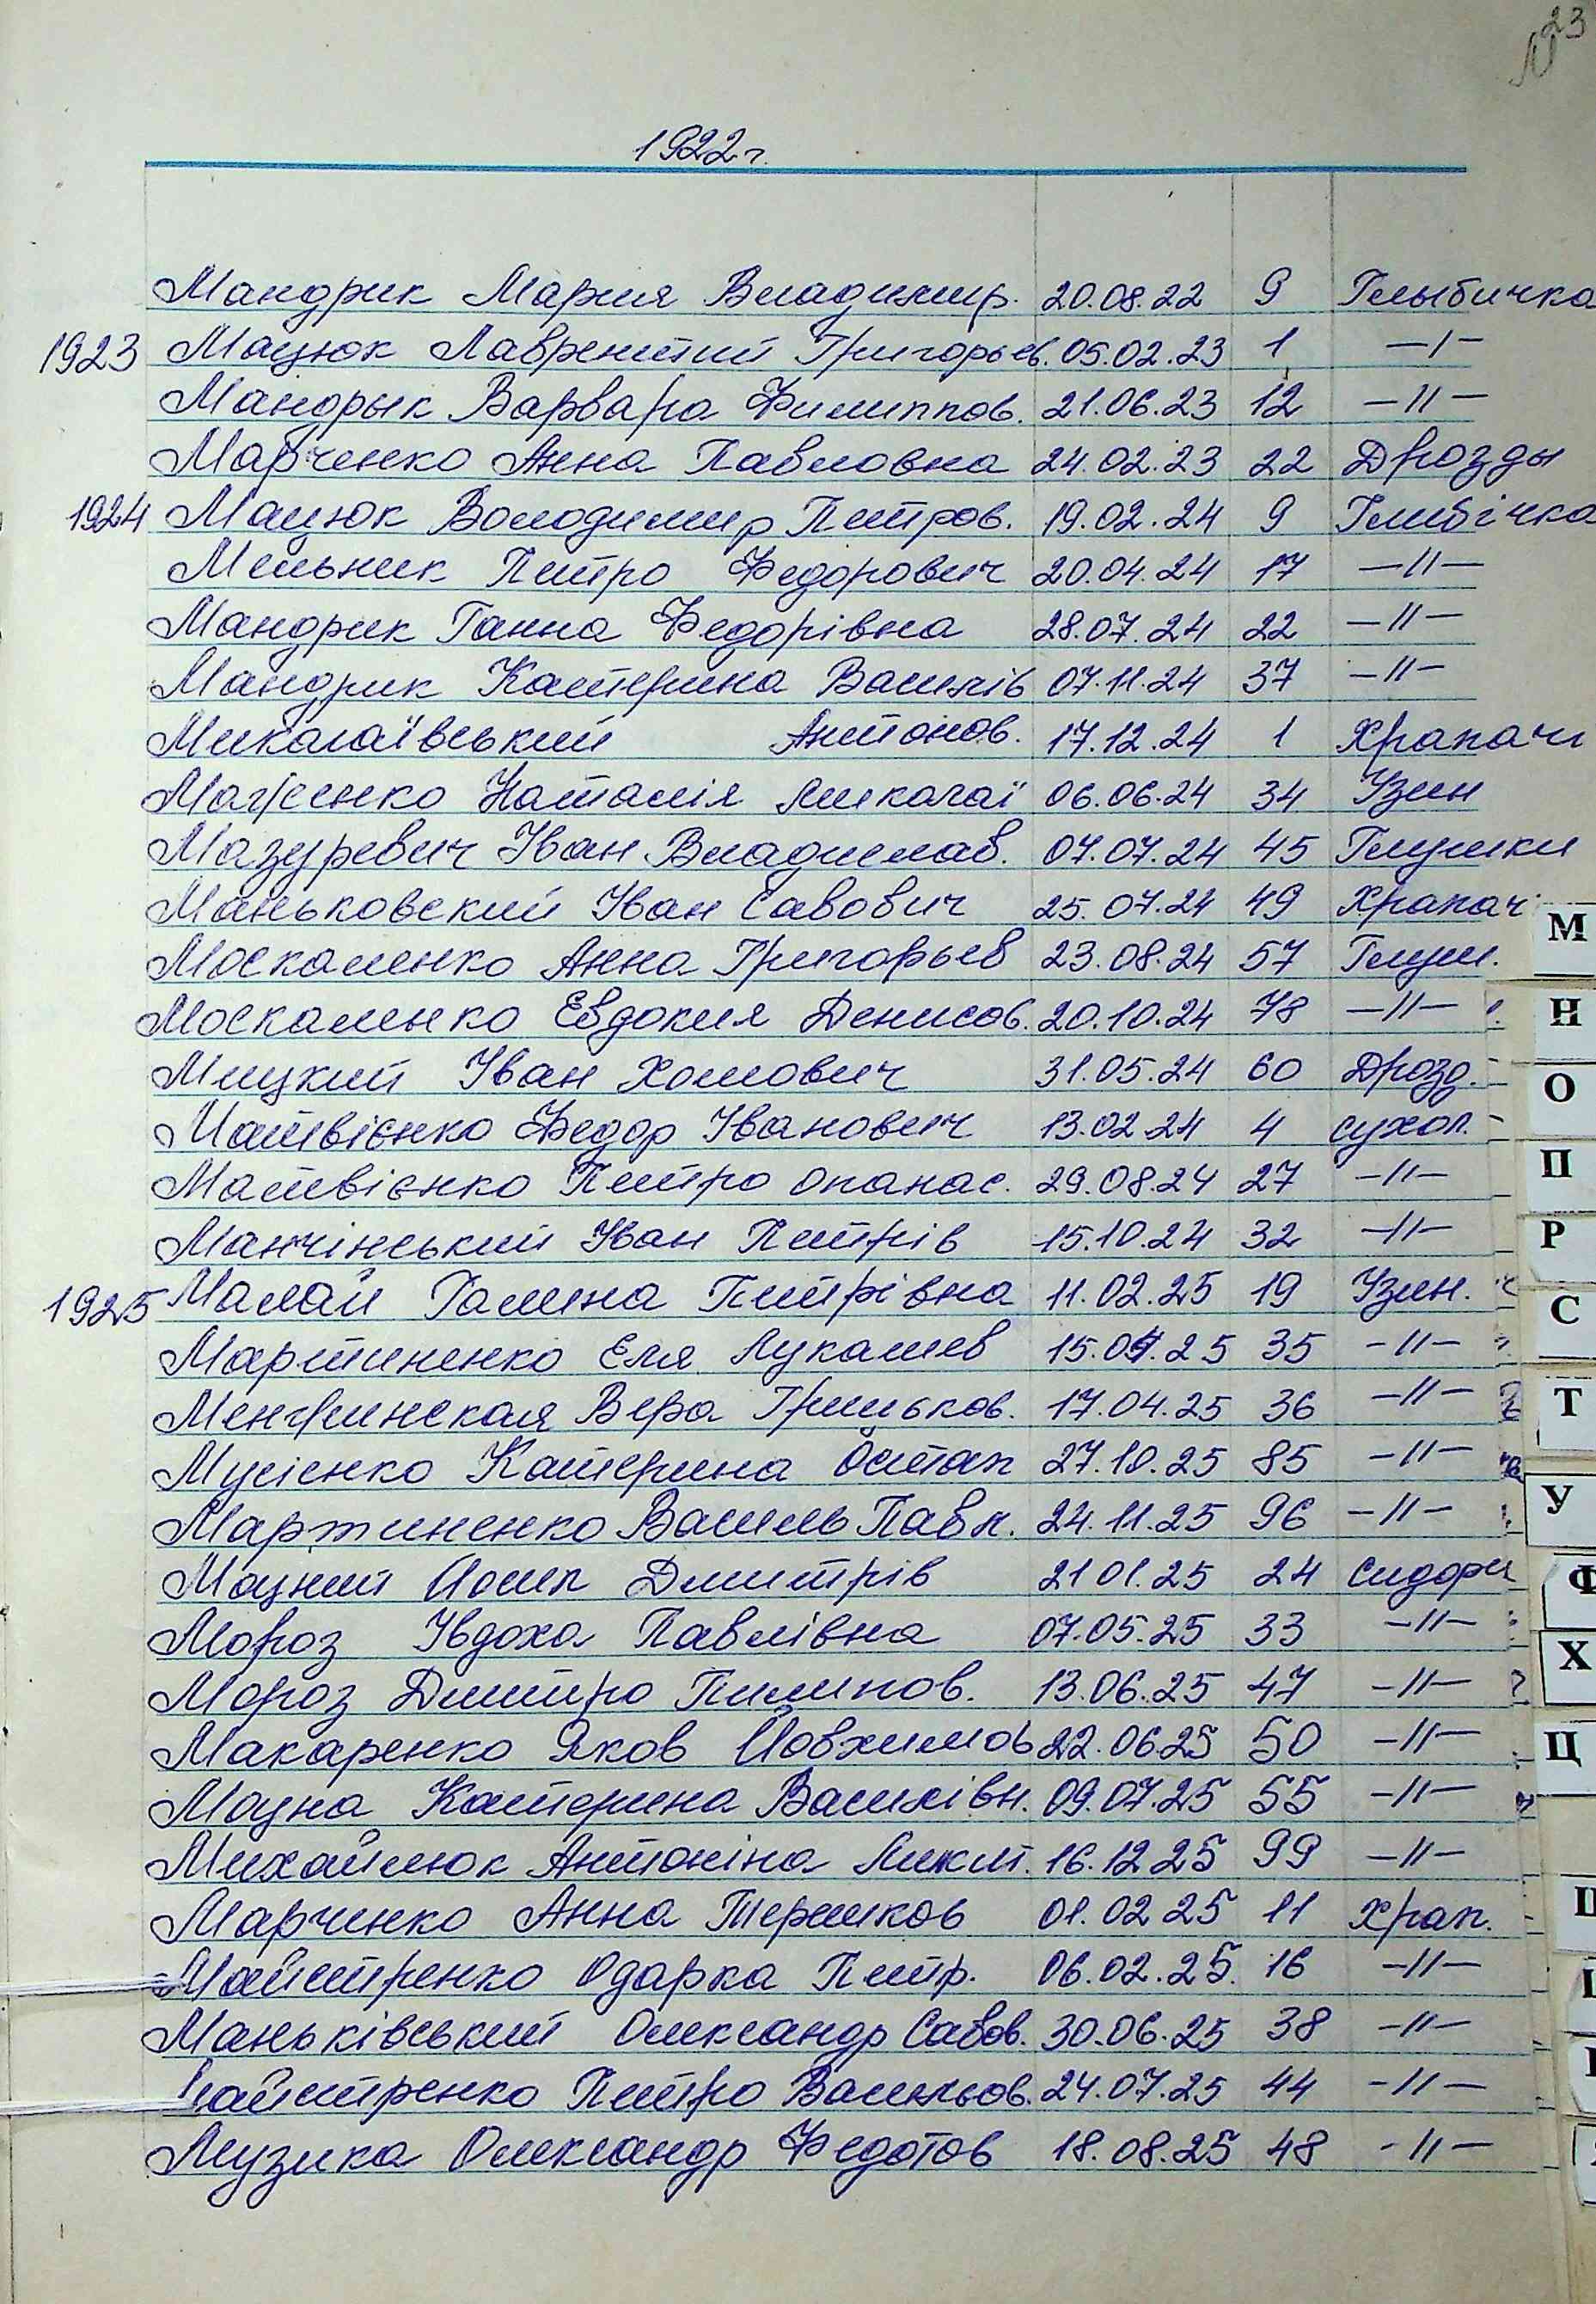 23
1922 г.
Мандрик Мария Владимир. 20.08.22 9 Глыбичка
1923 Мацюк Лаврентий Григорьев. 05.02.23 1 —ı—
Мандрык Варвара Филиппов. 21.06.23 12 —ıı—
Марченко Анна Павловна 24.02.23 22 Дрозды
1924 Мацюк Володимир Петров. 19.02.24 9 Глибічка
Мельник Петро Федорович 20.04.24 17 —ıı—
Мандрик Ганна Федорівна 28.07.24 22 —ıı—
Мандрик Катерина Василів 07.11.24 37 —ıı—
Миколаївський Антонов. 17.12.24 1 Храпачи
Наталія Миколаї 06.06.24 34 Узин
Мазуревич Іван Владислав. 07.07.24 45 Глушки
Маньковский Іван Савович 25.07.24 49 Храпач
Москаленко Анна Григорьев 23.08.24 57 Глуш.
Москаленко Евдокия Денисов. 20.10.24 78 —ıı—
Мицкий Іван Хомович 31.05.24 60 Дрозд.
Матвієнко Федор Іванович 13.02.24 4 сухол.
Матвієнко Петро Опанас. 29.08.24 27 —ıı—
Манчінський Іван Петрів 15.10.24 32 —ıı—
1925 Малай Галина Петрівна 11.02.25 19 Узин.
Мартиненко Еля Лукашев 15.04.25 35 —ıı—
Вера Грицьков. 17.04.25 36 —ıı—
Мусієнко Катерина Остап 27.10.25 85 —ıı—
Мартиненко Василь Павл. 24.11.25 96 —ıı—
Моцний Йосип Дмитрів 21 01.25 24 Сидори
Мороз Івдоха Павлівна 07.05.25 33 —ıı—
Мороз Дмитро Пилипов. 13.06.25 47 —ıı—
Макаренко Яков Йовхимов 22.06.25 50 —ıı—
Моцна Катерина Василівн. 09.07.25 55 —ıı—
Михайлюк Антоніна Микит. 16.12 25 99 —ıı—
Марченко Анна Терешков 01.02 25 11 Храп.
Майстренко Одарка Петр. 06.02.25. 16 —ıı—
Маньківський Олександр Савов. 30.06.25 38 —ıı—
Майстренко Петро Васильов. 24.07.25 44 —ıı—
Музика Олександр Федотов 18.08.25 48 —ıı—
М
Н
О
П
Р
С
Т
У
Ф
Х
Ц